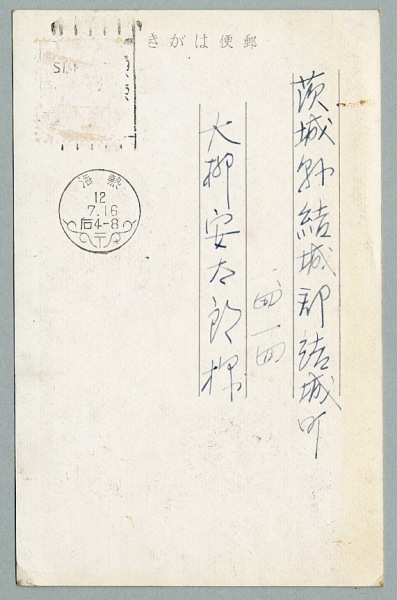 きがは便郵
茨城縣結城郡結城町
一四一四
大柳安太郎様
熱海
12
7.16
后4-8